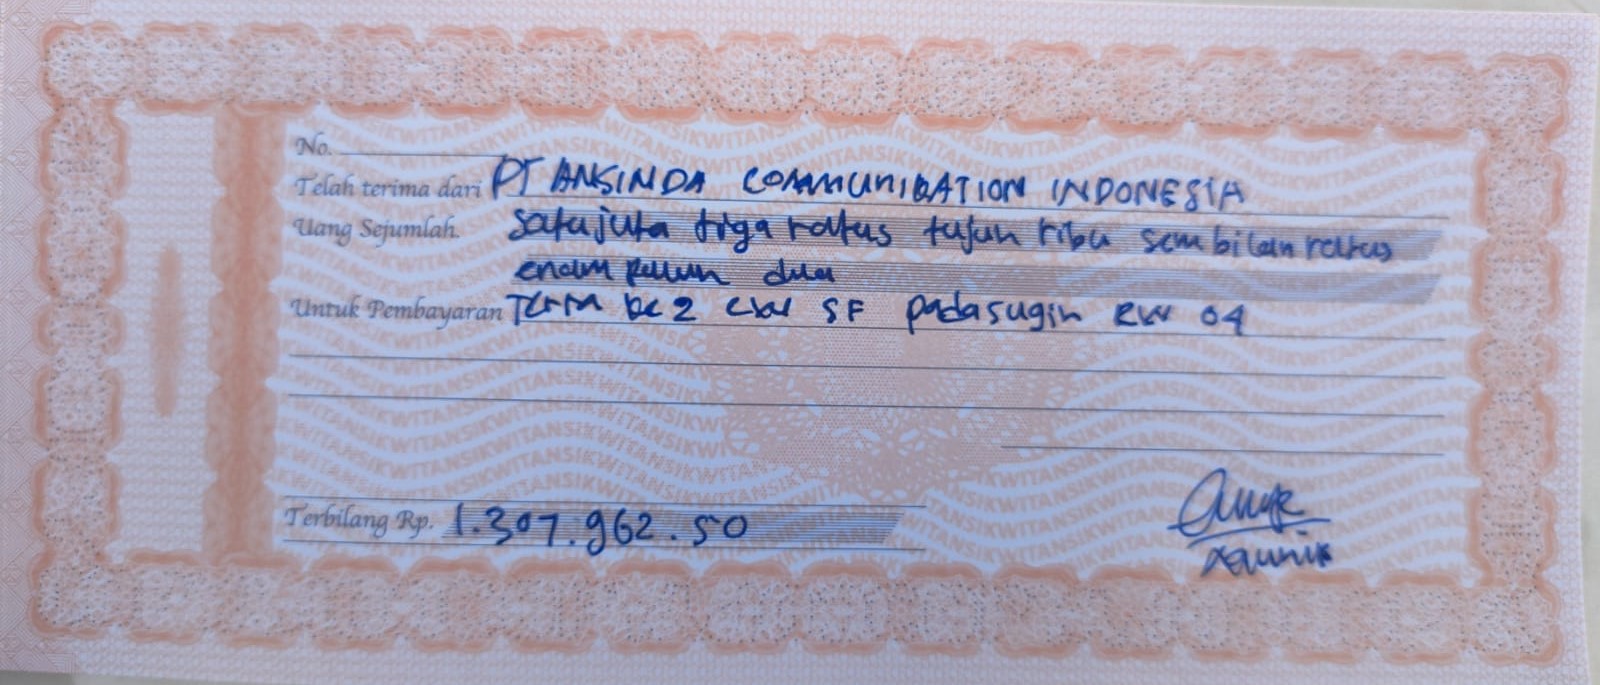 No.
Telah terima dari PT ANSINDA COMMUNIKATION INDONESIA
Uang Sejumlah. satu juta tiga ratus tujuh ribu sembilan ratus
enam puluh dua
Untuk Pembayaran Term ke 2 CKW SF padasugih RW 04
Terbilang Rp. 1.307.962.50